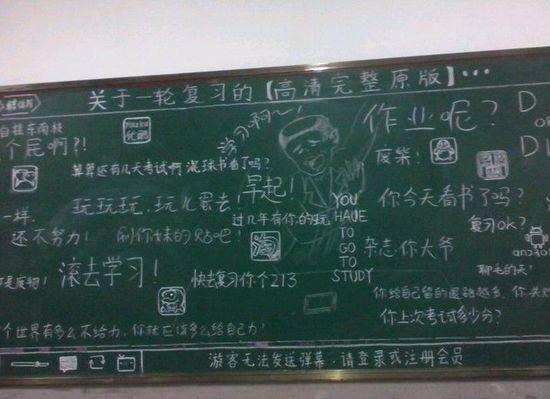 关于一轮复习的【高清完整原版】…
作业呢？
个屁啊?!
算算还有几天考试啊
废柴!
早起!
你今天看书了吗?
一样.
玩玩玩.玩儿蛋去!
过几年有你的玩
YOU
HAVE
TO
GO
TO
STUDY
复习ok?
还不努力!
刷你妹的贴吧!
杂志你大爷
android
滚去学习!
快去复习你个213
聊毛的天!
你给自己留的退路越多.
你上次考试多少分?
个世界有多么不给力.你就应该多么给自己力!
游客无法发送弹幕.请登录或注册会员